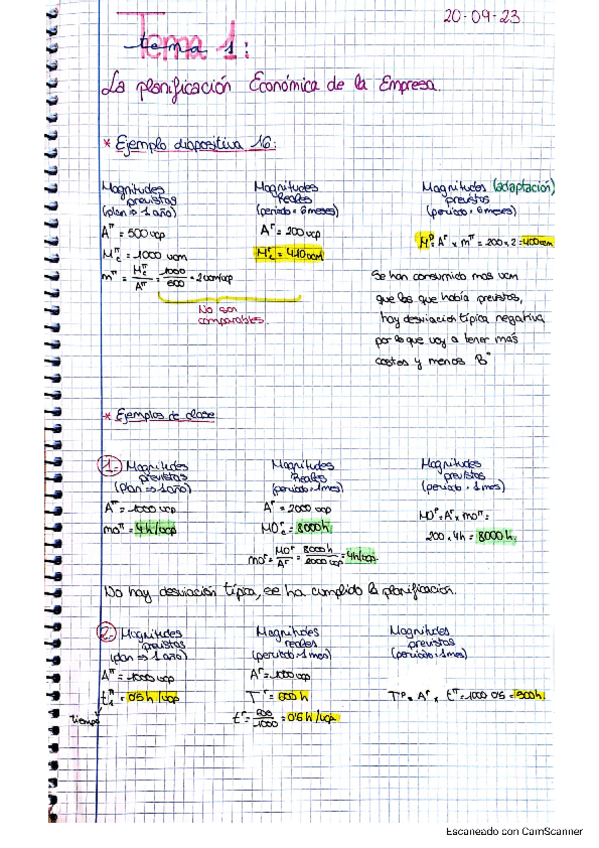 20-09-23
Tema 1:
tema 1:
La planificación Económica de la Empresa.
* Ejemplo diapositiva 16:
Magnitudes previstas (plan => 1 año)
Aⁿ = 500 ucp
Mcⁿ = 1000 ucm
mⁿ = Mcⁿ / Aⁿ = 1000 / 500 = 2 ucm/ucp
Magnitudes Reales (periodo: 6 meses)
Aʳ = 200 ucp
Mcʳ = 410 ucm
No son comparables.
Magnitudes (adaptación) previstas (periodo: 6 meses)
Mcᵖ = Aʳ x mⁿ = 200 x 2 = 400 ucm
Se han consumido mas ucm
que los que había previstos,
hay desviación típica negativa
por lo que voy a tener más
costes y menos Bº
* Ejemplos de clase
1. Magnitudes previstas (plan => 1 año)
Aⁿ = 1000 ucp
moⁿ = 4h/ucp
Magnitudes Reales (periodo: 1 mes)
Aʳ = 2000 ucp
MOcʳ = 8000 h
moʳ = MOʳ / Aʳ = 8000 h / 2000 ucp = 4h/ucp
Magnitudes previstas (periodo: 1 mes)
MOᵖ = Aʳ x moⁿ =
200 x 4h = 8000 h.
No hay desviación típica, se ha cumplido la planificación.
2. Magnitudes previstas (plan => 1 año)
Aⁿ = 1000 ucp
t₁ⁿ = 0'5 h/ucp
Tiempo
Magnitudes reales (periodo: 1 mes)
Aʳ = 1000 ucp
Tʳ = 600 h
tʳ = 600 / 1000 = 0'6 h/ucp
Magnitudes previstas (periodo: 1 mes)
Tᵖ = Aʳ x tⁿ = 1000 · 0'5 = 500h.
Escaneado con CamScanner